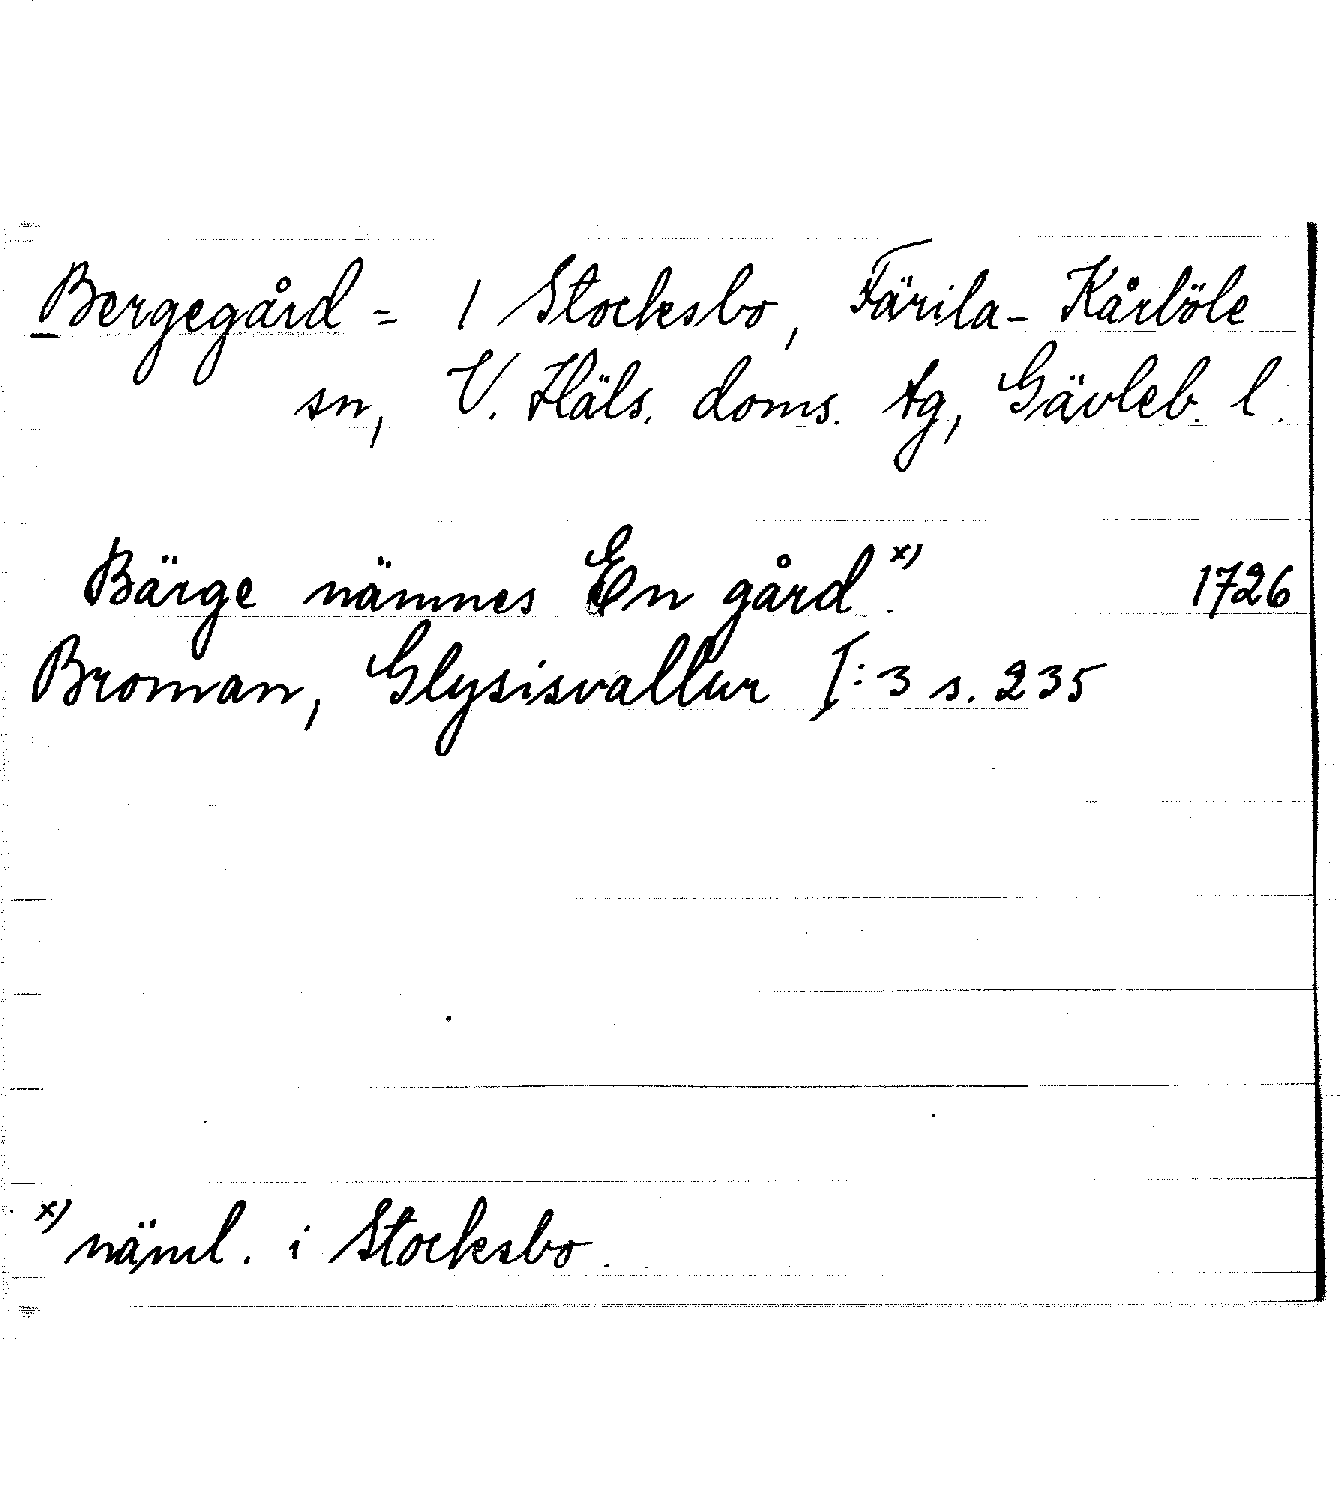 Bergegård = 1 Stocksbo, Färila-Kårlöle
sn, V. Häls. doms. tg, Gävleb. l.
Bärge nämnes En gård x). 1726
Broman, Glysisvallur I:3 s. 235
x) näml. i Stocksbo.